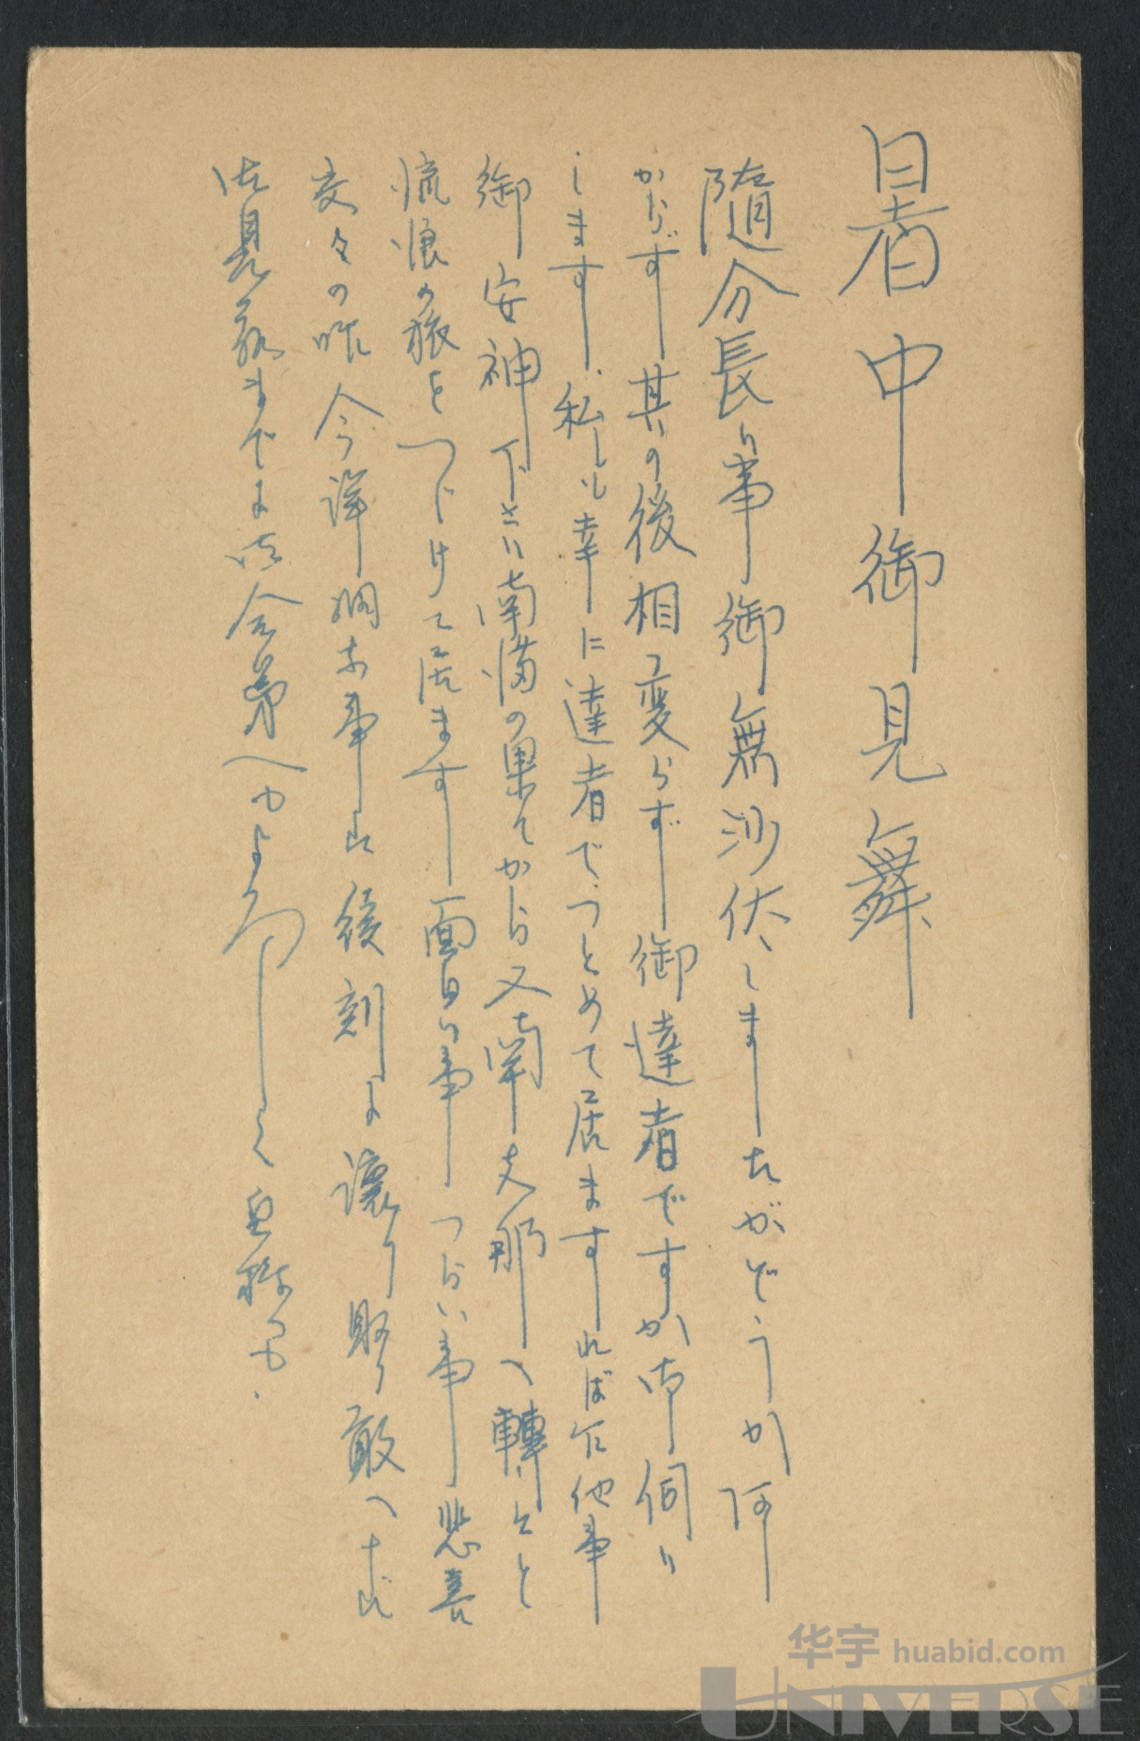 暑中御見舞
随分長い事御無沙汰しましたがどうか何
からず其の後相変らず御達者ですか御伺い
します、私しも幸に達者でつとめて居ますれば他事
御安神下さい南満の果てから又南支那へ轉々と
流浪の旅をつゞけて居ます面白い事つらい事悲喜
交々の 今詳細な事は後刻に譲り取り敢へず
御見舞まで に 会第へもよろしく 皆様にも.
华宇 huabid.com
UNIVERSE